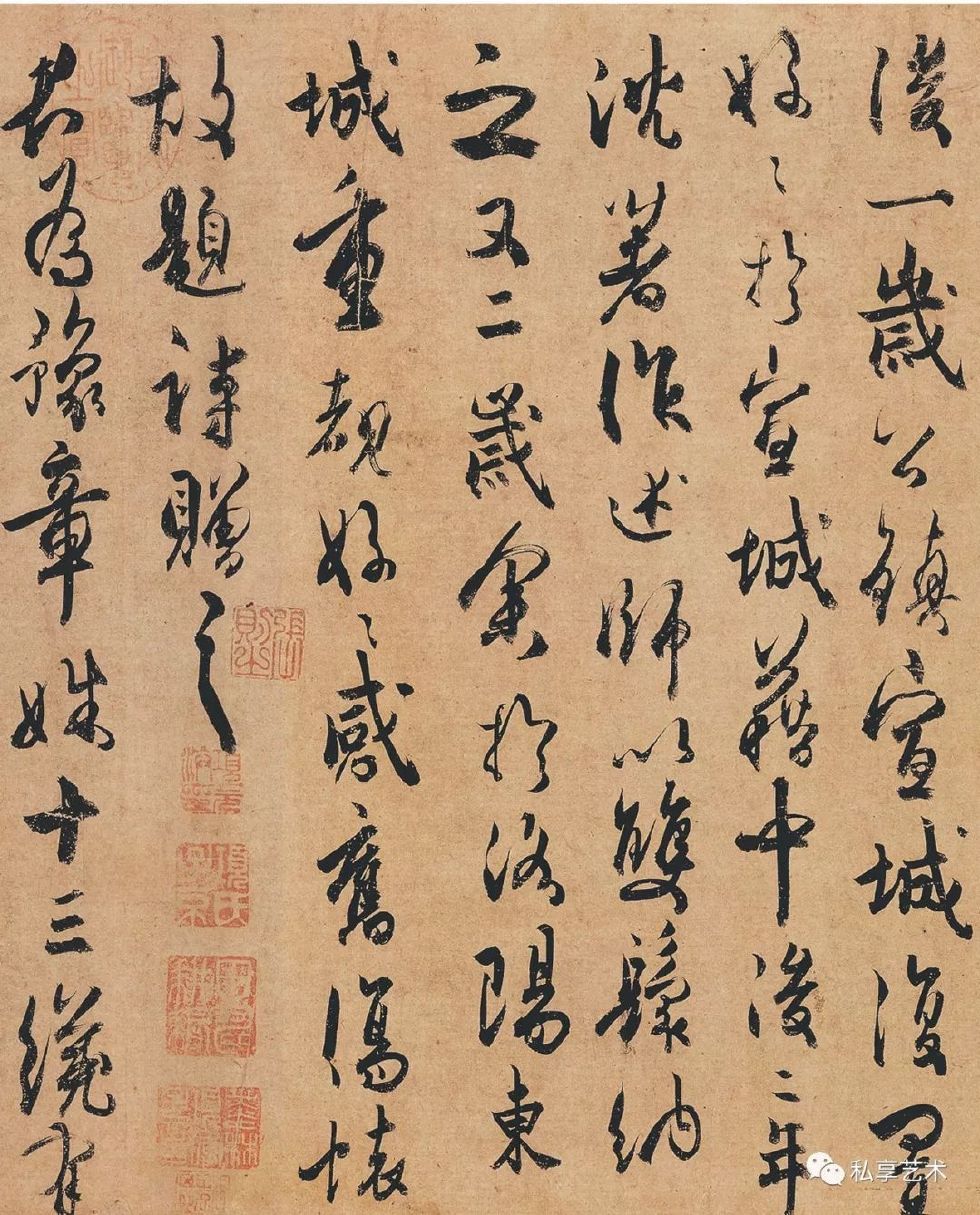 後一歲公鎮宣城復置
好〻於宣城籍中後二年
沈著作述師以雙鬟納
之又二歲余於洛陽東
城重覩好〻感舊傷懷
故題詩贈之
君為豫章姝十三纔有
私享艺术